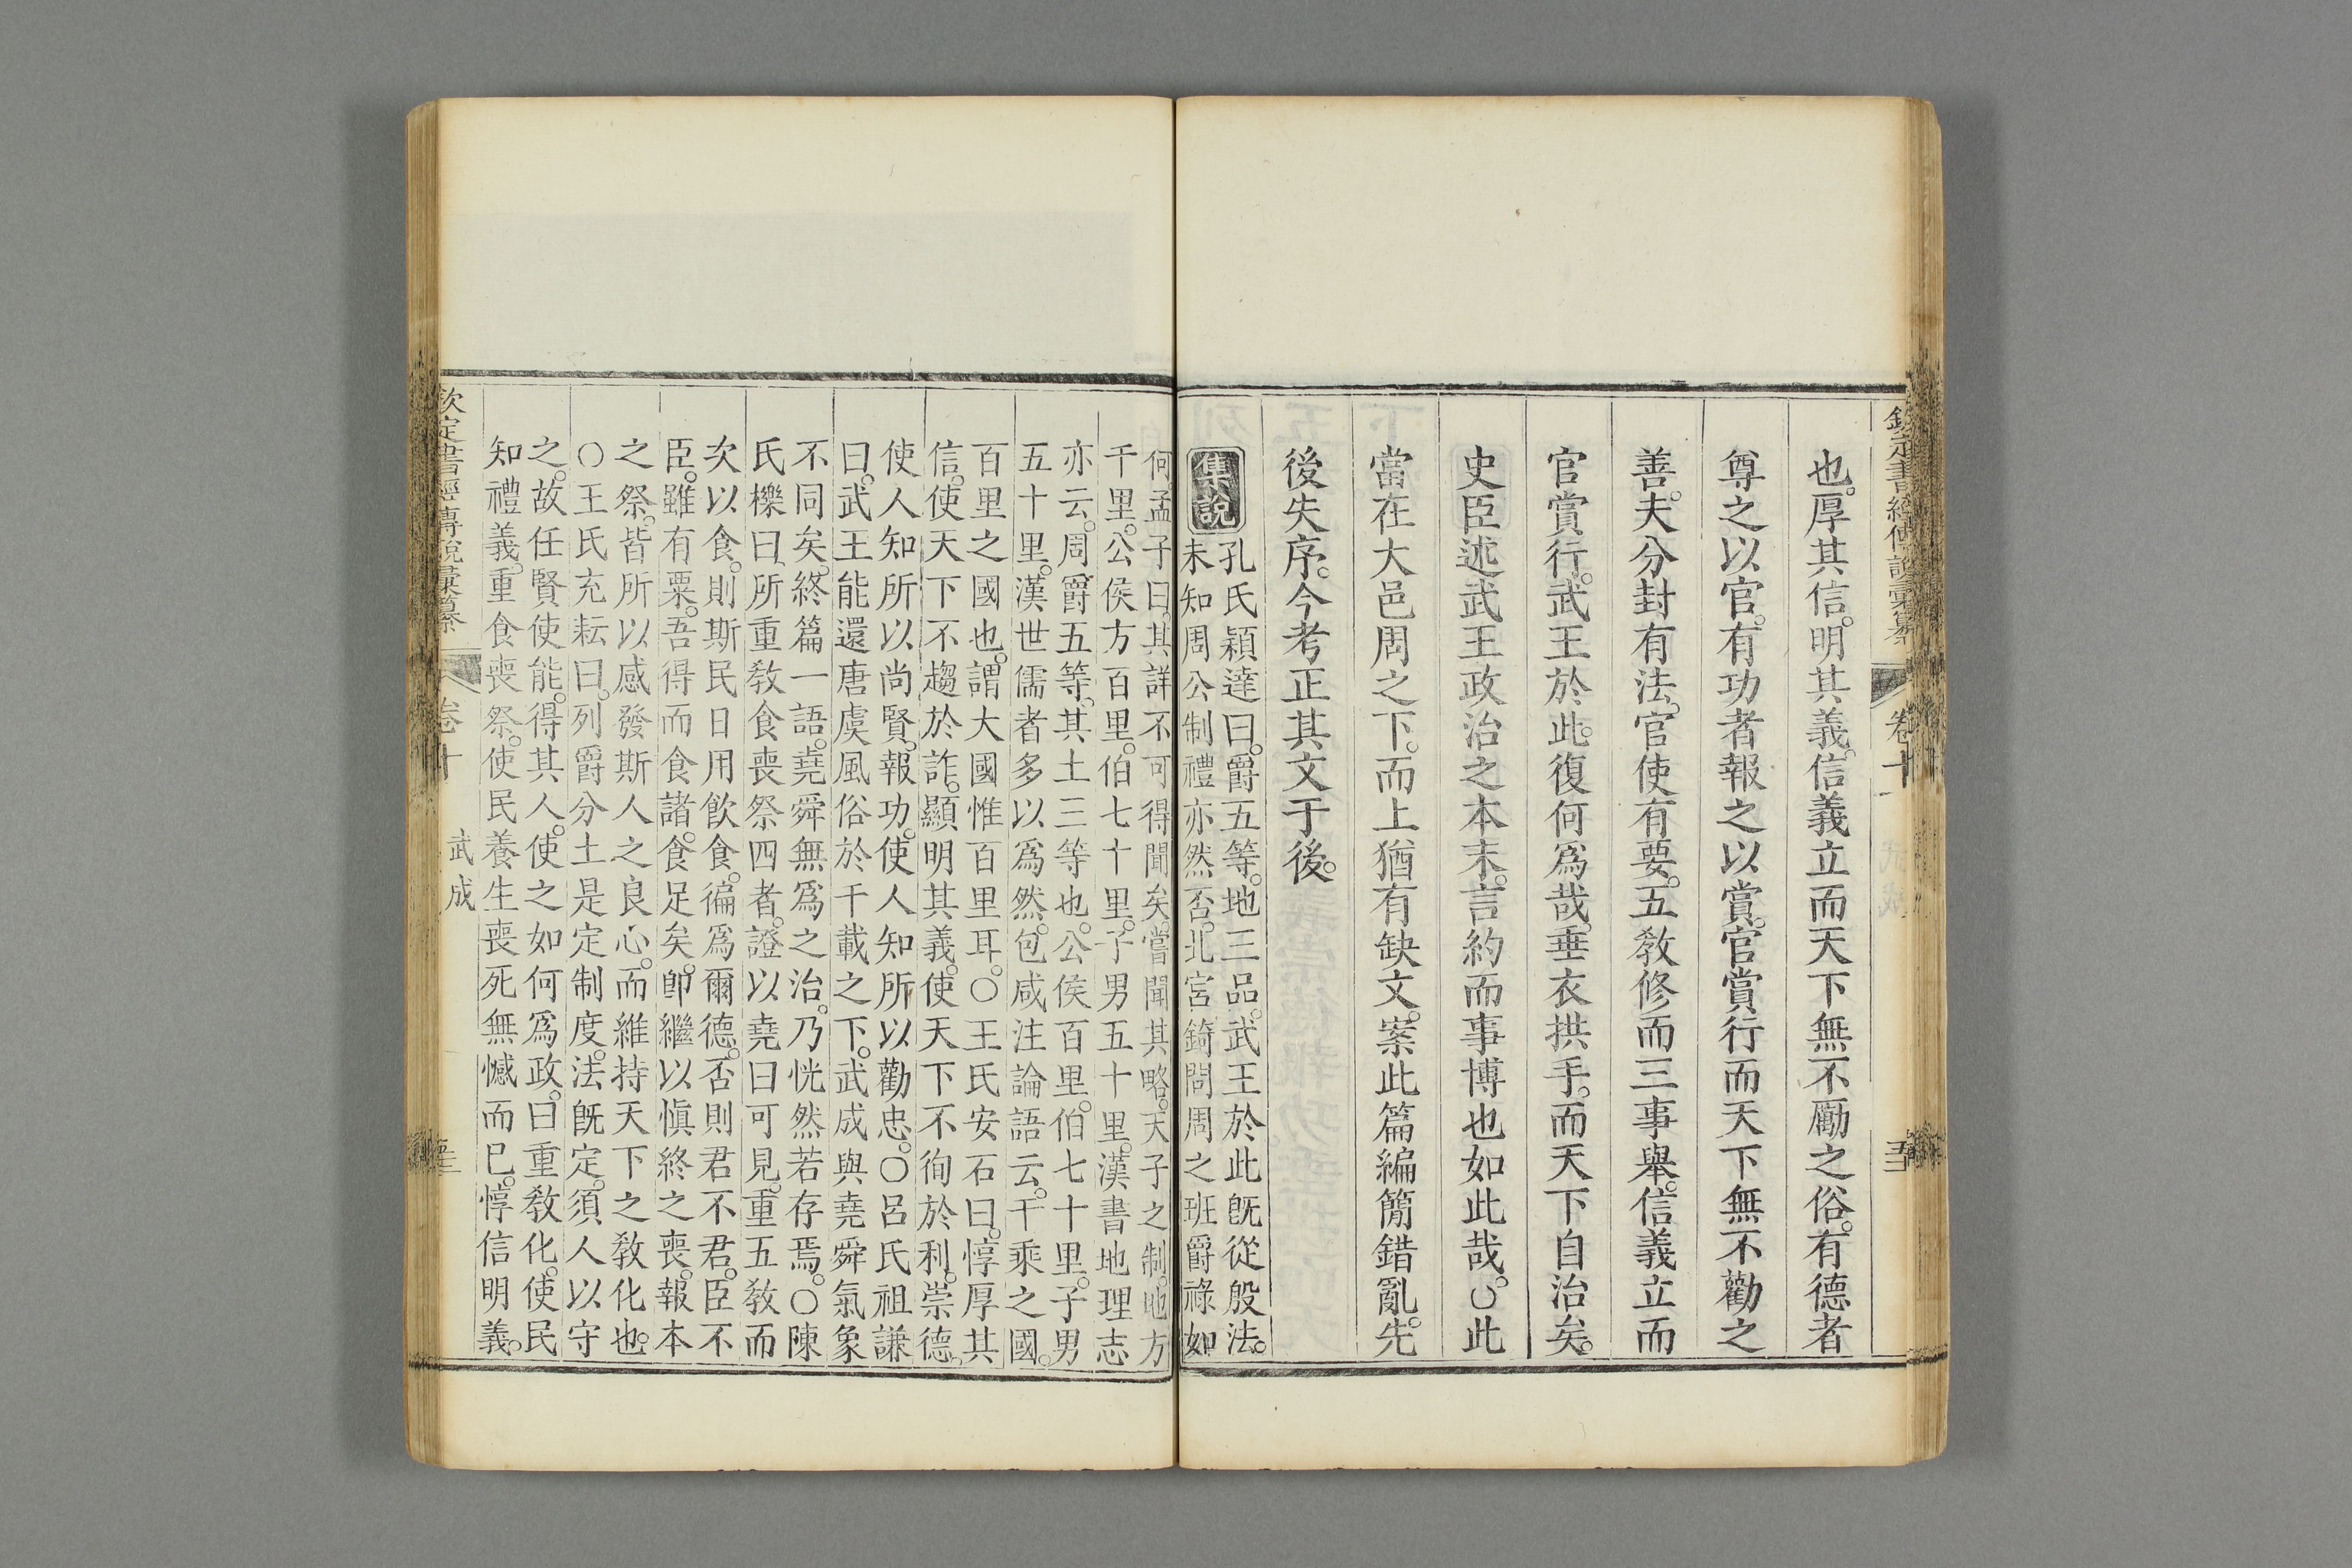 欽定書經傳說彙纂 卷十
也。厚其信。明其義。信義立而天下無不勵之俗。有德者
尊之以官。有功者報之以賞。官賞行而天下無不勸之
善。夫分封有法。官使有要。五敎修而三事舉。信義立而
官賞行。武王於此。復何爲哉。垂衣拱手。而天下自治矣。
史臣述武王政治之本末。言約而事博也如此哉。○此
當在大邑周之下。而上猶有缺文。案此篇編簡錯亂。先
後失序。今考正其文于後。
集說
孔氏穎達曰。爵五等。地三品。武王於此旣從殷法。
未知周公制禮亦然否。北宮錡問周之班爵祿如
何。孟子曰。其詳不可得聞矣。嘗聞其略。天子之制。地方
千里。公侯方百里。伯七十里。子男五十里。漢書地理志
亦云。周爵五等。其土三等也。公侯百里。伯七十里。子男
五十里。漢世儒者多以爲然。包咸注論語云。千乘之國。
百里之國也。謂大國惟百里耳。○王氏安石曰。惇厚其
信。使天下不趨於詐。顯明其義。使天下不徇於利。崇德。
使人知所以尚賢。報功。使人知所以勸忠。○呂氏祖謙
曰。武王能還唐虞風俗於千載之下。武成與堯舜氣象
不同矣。終篇一語。堯舜無爲之治。乃恍然若存焉。○陳
氏櫟曰。所重敎食喪祭四者。證以堯曰可見。重五敎而
次以食。則斯民日用飲食。徧爲爾德。否則君不君。臣不
臣。雖有粟。吾得而食諸。食足矣。卽繼以愼終之喪。報本
之祭。皆所以感發斯人之良心。而維持天下之敎化也。
○王氏充耘曰。列爵分土。是定制度。法旣定。須人以守
之。故任賢使能。得其人。使之如何爲政。曰重敎化。使民
知禮義。重食喪祭。使民養生喪死無憾而已。惇信明義。
欽定書經傳說彙纂 卷十 武成